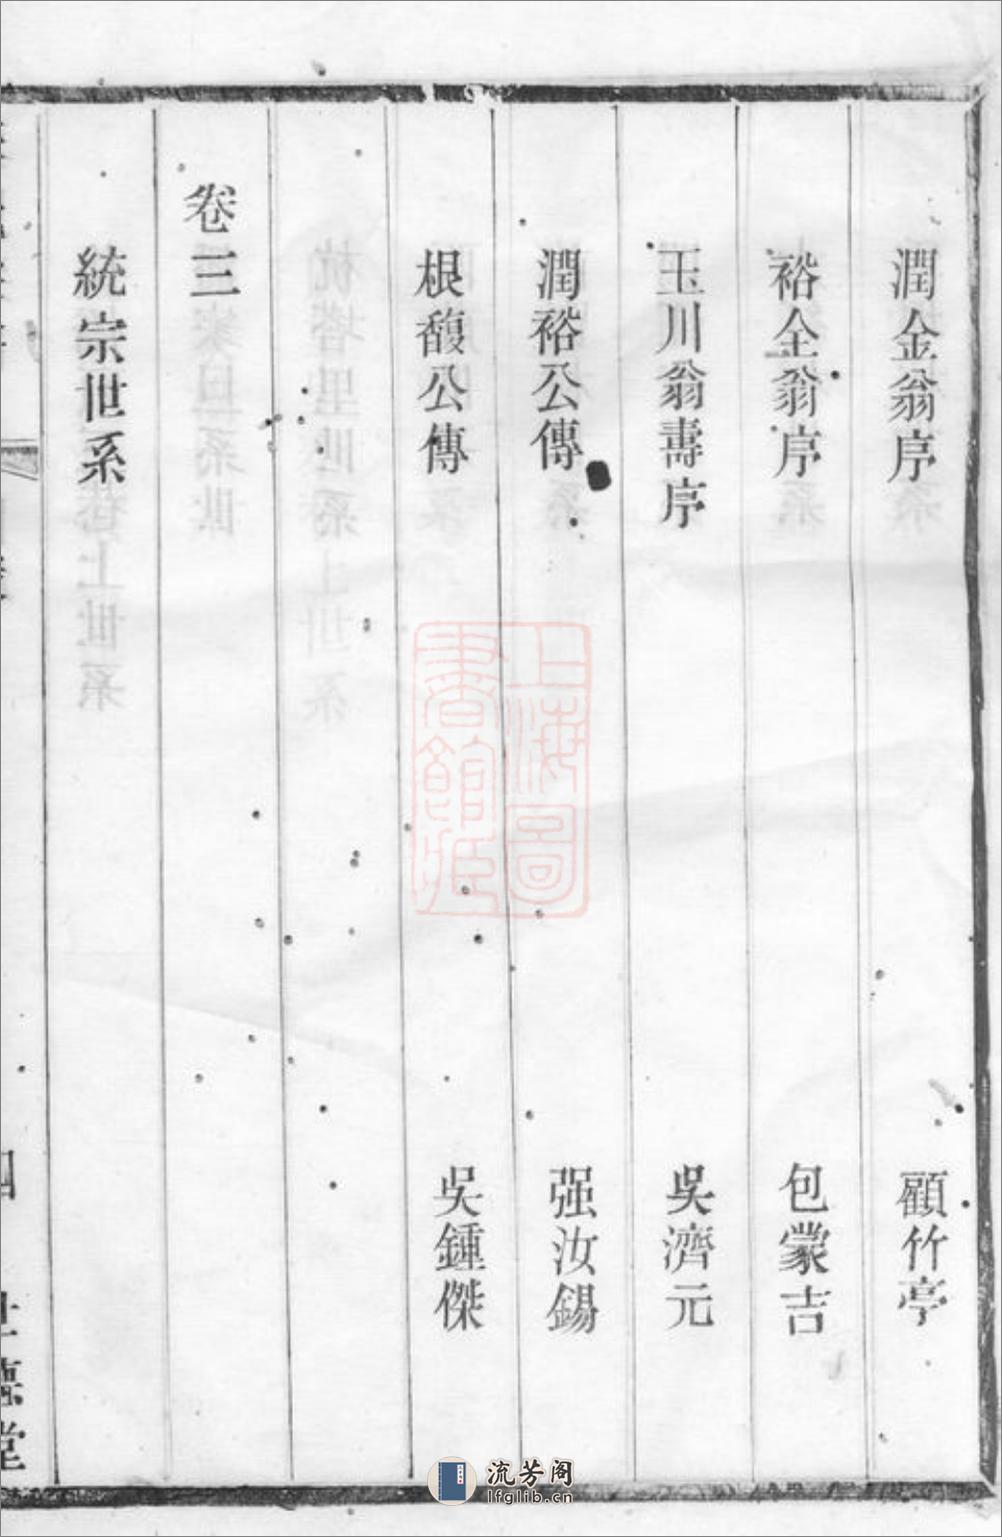 潤金翁序 顧竹亭
裕全翁序 包蒙吉
玉川翁壽序 吳濟元
潤裕公傳 强汝錫
根馥公傳 吳鍾傑
卷三
統宗世系
四
上海圖書館藏
流芳阁
lfglib.cn